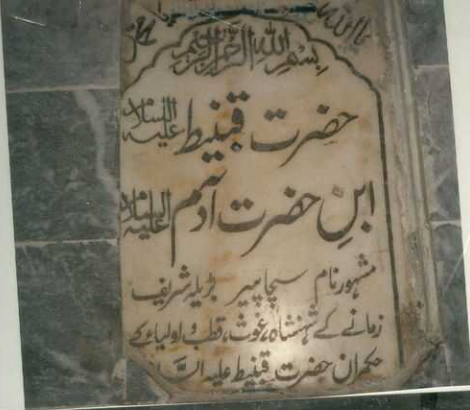 یا اللہ
یا محمد
بسم اللہ الرحمٰن الرحیم
حضرت قبنیط علیہ السلام
ابنِ حضرت آدم علیہ السلام
مشہور نام سچا پیر بڑیلہ شریف
زمانے کے شہنشاہ، غوث، قطب و اولیاء کے
حکمران حضرت قبنیط علیہ السلام